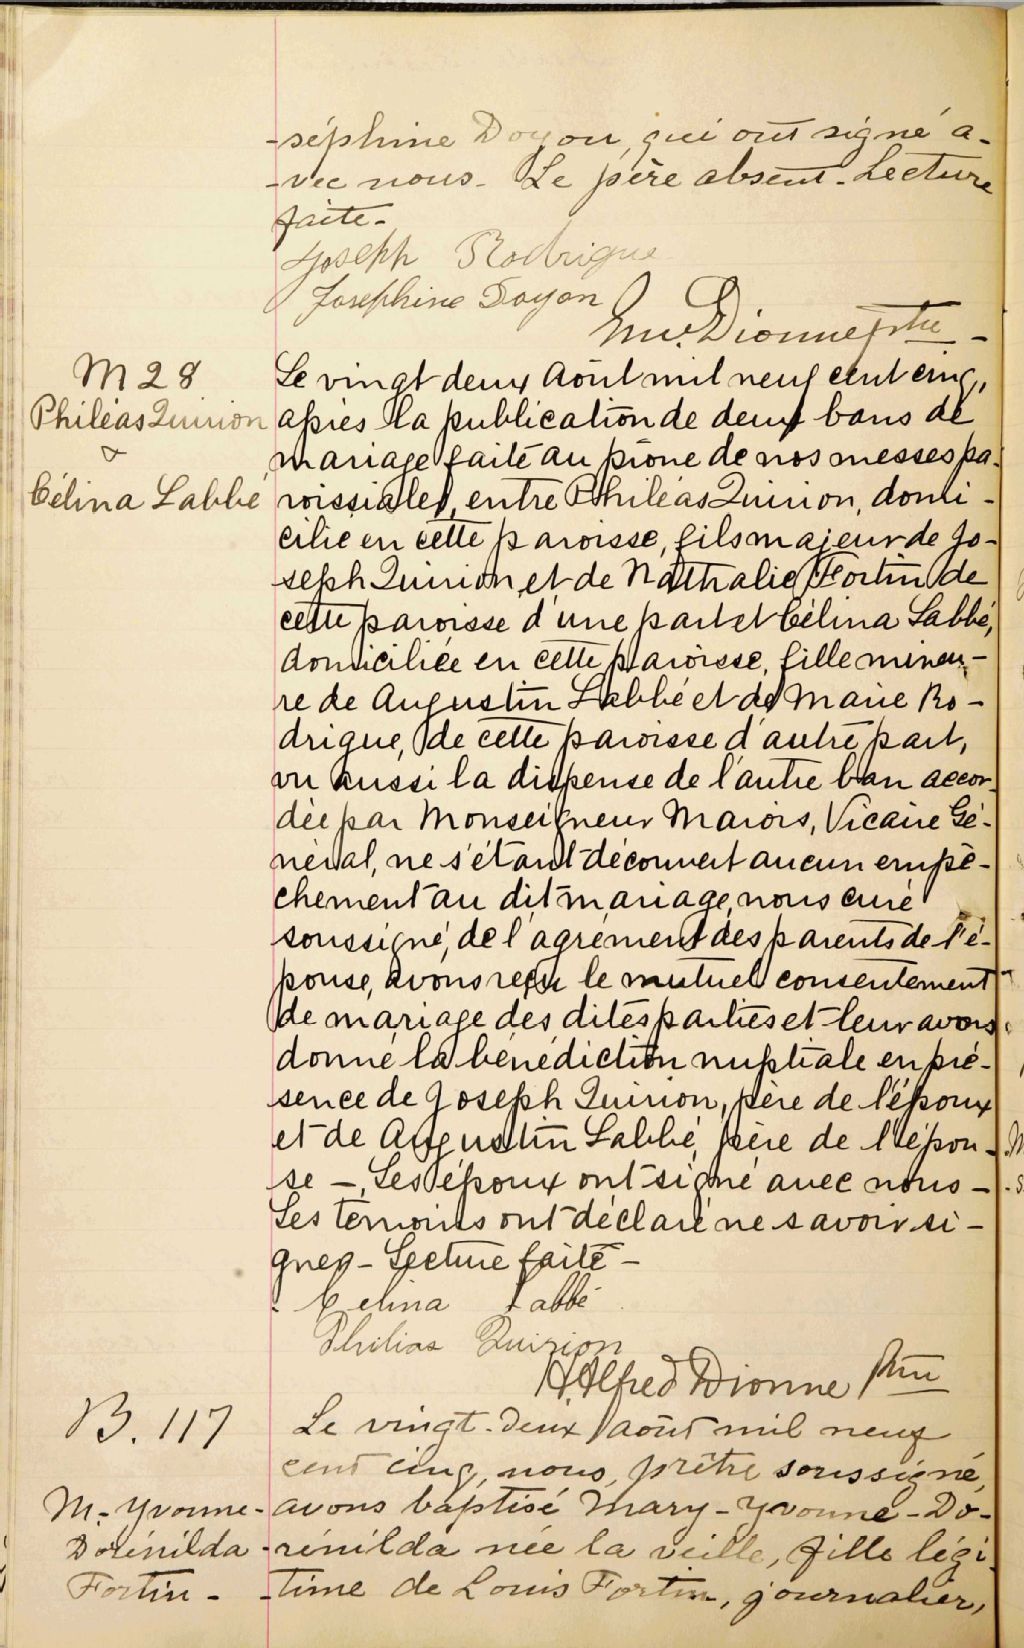 -séphine Doyon, qui ont signé a-
-vec nous. Le père absent. Lecture
faite.
Joseph Rodrigue
Josephine Doyon
Dionne ptre
M 28
Philéas Quirion
&
Célina Labbé
Le vingt deux Août mil neuf cent cinq,
après la publication de deux bans de
mariage faite au prône de nos messes pa-
roissiales, entre Philéas Quirion, domi-
cilié en cette paroisse, fils majeur de Jo-
seph Quirion et de Nathalie Fortin de
cette paroisse d'une part et Célina Labbé,
domiciliée en cette paroisse, fille mineu-
re de Augustin Labbé et de Marie Ro-
drigue, de cette paroisse d'autre part,
vu aussi la dispense de l'autre ban accor-
dée par Monseigneur Marois, Vicaire Gé-
néral, ne s'étant découvert aucun empê-
chement au dit mariage, nous curé
soussigné, de l'agrément des parents de l'é-
pouse, avons reçu le mutuel consentement
de mariage des dites parties et leur avons
donné la bénédiction nuptiale en pré-
sence de Joseph Quirion, père de l'époux
et de Augustin Labbé, père de l'épou-
se -, Les époux ont signé avec nous -
Les témoins ont déclaré ne savoir si-
gner - Lecture faite -
Celina Labbé
Philias Quirion
H. Alfred Dionne Ptre
B. 117
M.- Yvonne-
Dorénilda
Fortin -
Le vingt-deux août mil neuf
cent cinq, nous, prêtre soussigné,
avons baptisé Mary-Yvonne-Do-
-rénilda née la veille, fille légi-
-time de Louis Fortin, journalier,